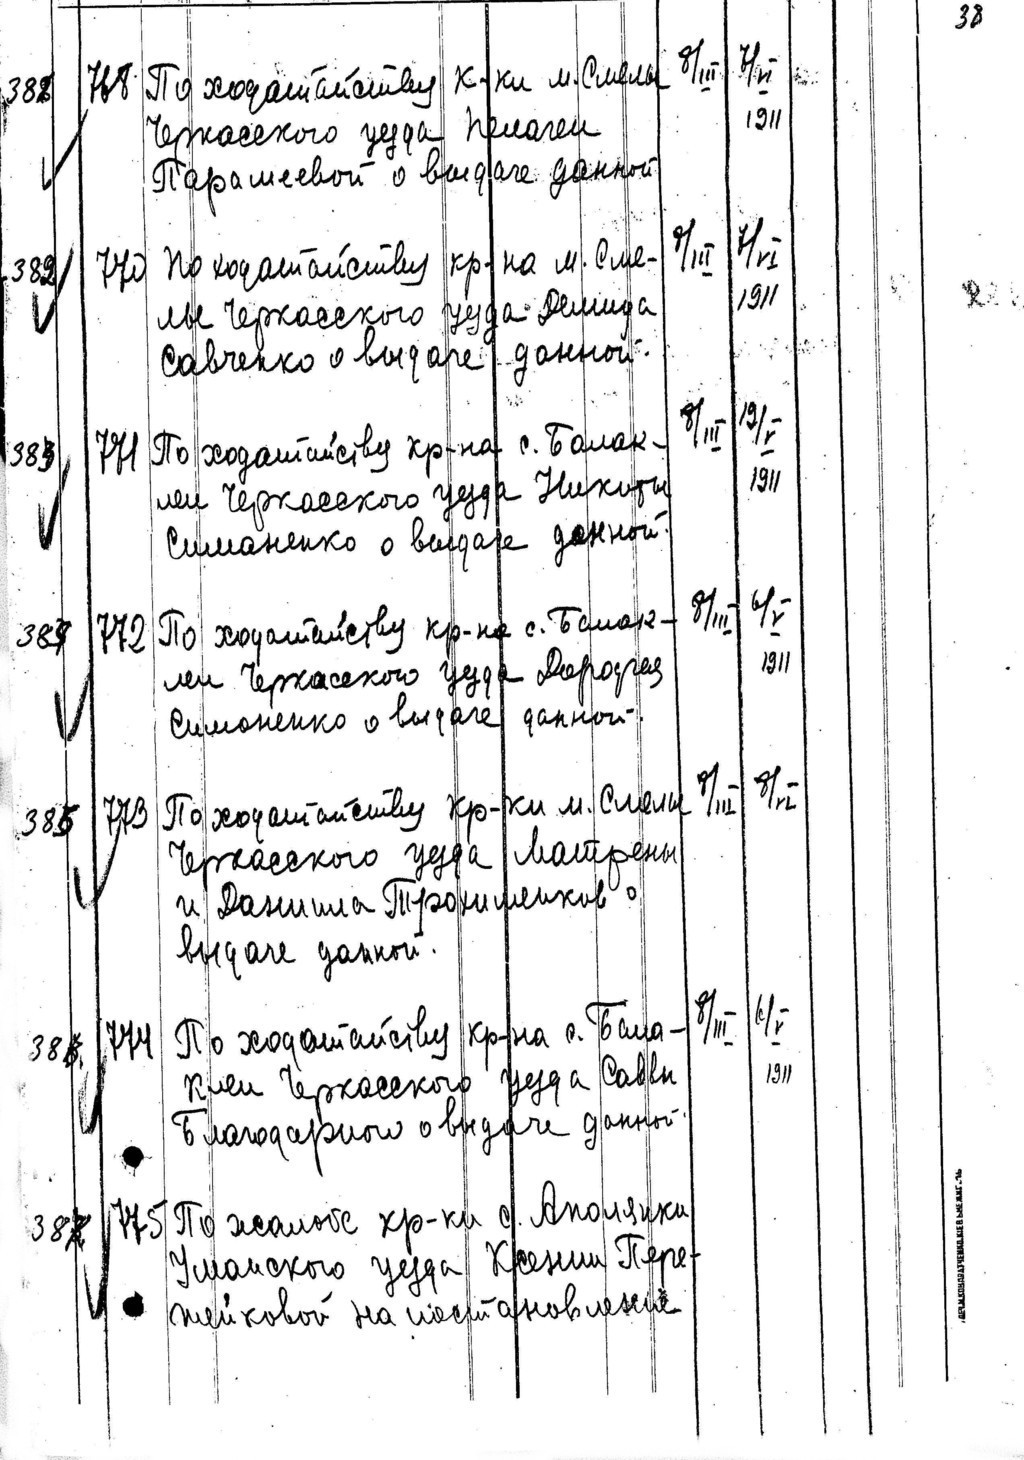 38
381 768 По ходатайству к-ки м. Смелы 8/III 7/VI
Черкасского уезда Пелагеи 1911
Парамеевой о выдаче данной
382 770 По ходатайству кр-на м. Сме- 8/III 7/VI
лы Черкасского уезда Демида 1911
Савченко о выдаче данной.
383 771 По ходатайству кр-на с. Балак- 8/III 12/V
леи Черкасского уезда Никиты 1911
Симаненко о выдаче данной.
384 772 По ходатайству кр-на с. Балак- 8/III 6/V
леи Черкасского уезда Дорофея 1911
Симоненко о выдаче данной.
385 773 По ходатайству кр-ки м. Смелы 8/III 8/VI
Черкасского уезда Матрены
и Даниила Трохименков о
выдаче данной.
386. 774 По ходатайству кр-на с. Бала- 8/III 6/V
клеи Черкасского уезда Саввы 1911
Благодарного о выдаче данной.
387 775 По жалобе кр-ки с. Аполянки
Уманского уезда Ксении Пере-
пейковой на постановление